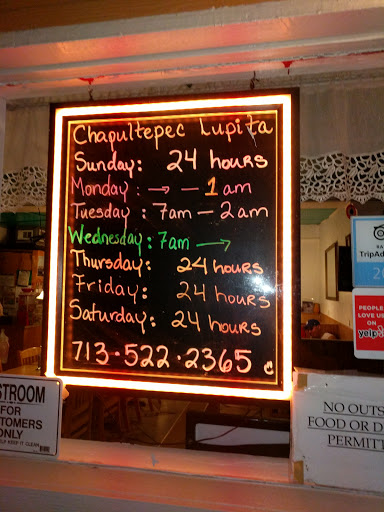 Chapultepec Lupita
Sunday: 24 hours
Monday: → - 1am
Tuesday: 7am - 2am
Wednesday: 7am →
Thursday: 24 hours
Friday: 24 hours
Saturday: 24 hours
713·522·2365
TripAd
PEOPLE
LOVE US
ON
yelp
STROOM
FOR
TOMERS
ONLY
KEEP IT CLEAN
NO OUTS
FOOD OR D
PERMITT